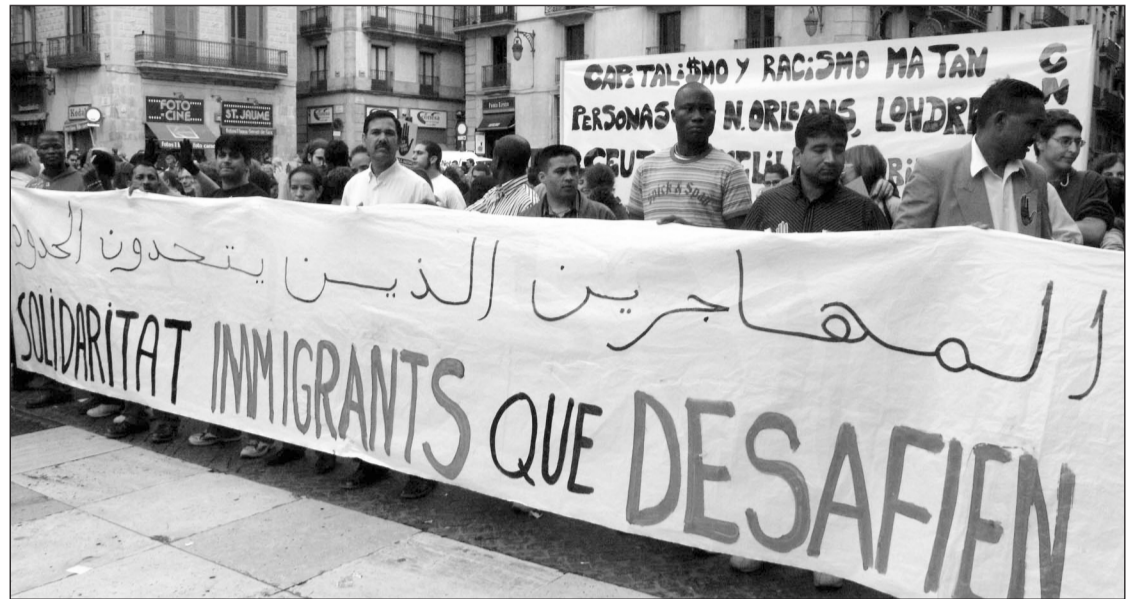 FOTO
CINE
ST. JAUME
CAPITALI$MO Y RACISMO MATAN
PERSONAS N. ORLEANS, LONDRE
CEUT
CN
Spick & Span
المهاجرين الذين يتحدون الحدو
SOLIDARITAT IMMIGRANTS QUE DESAFIEN